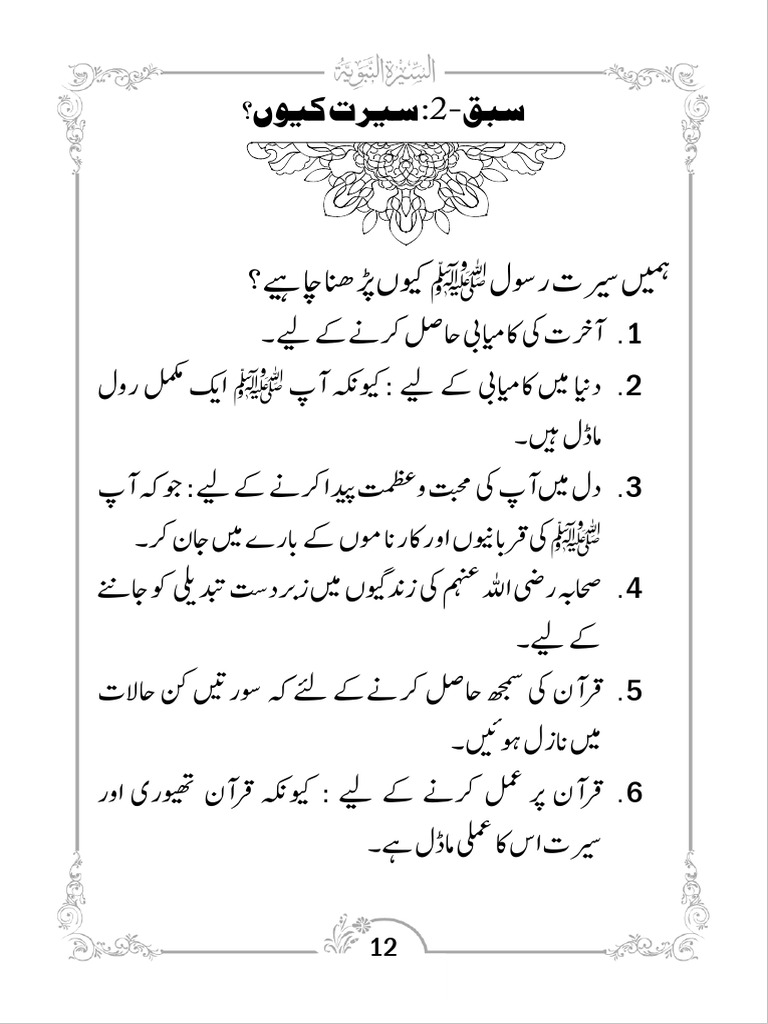 السيرة النبوية
سبق-2: سیرت کیوں؟
ہمیں سیرت رسول ﷺ کیوں پڑھنا چاہیے؟
1. آخرت کی کامیابی حاصل کرنے کے لیے۔
2. دنیا میں کامیابی کے لیے : کیونکہ آپ ﷺ ایک مکمل رول
ماڈل ہیں۔
3. دل میں آپ کی محبت و عظمت پیدا کرنے کے لیے : جو کہ آپ
ﷺ کی قربانیوں اور کارناموں کے بارے میں جان کر۔
4. صحابہ رضی اللہ عنہم کی زندگیوں میں زبردست تبدیلی کو جاننے
کے لیے۔
5. قرآن کی سمجھ حاصل کرنے کے لئے کہ سورتیں کن حالات
میں نازل ہوئیں۔
6. قرآن پر عمل کرنے کے لیے : کیونکہ قرآن تھیوری اور
سیرت اس کا عملی ماڈل ہے۔
12